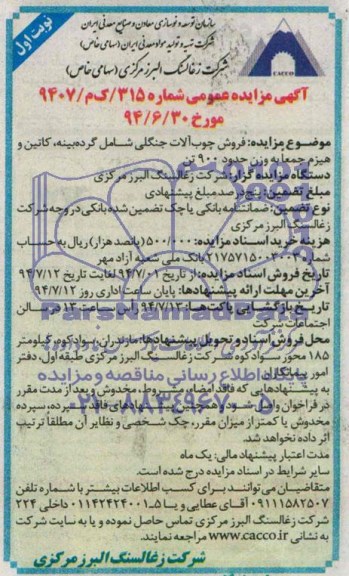 نوبت اول
سازمان توسعه و نوسازی معادن و صنایع معدنی ایران
شرکت تهیه و تولید مواد معدنی ایران (سهامی خاص)
شرکت زغالسنگ البرز مرکزی (سهامی خاص)
CACCO
آگهی مزایده عمومی شماره ۳۱۵/ک‌م/۹۴۰۷
مورخ ۹۴/۶/۳۰
موضوع مزایده: فروش چوب‌آلات جنگلی شامل گرده‌بینه، کاتین و
هیزم جمعاً به وزن حدود ۹۰۰ تن
دستگاه مزایده گزار: شرکت زغالسنگ البرز مرکزی
مبلغ تضمین: پنج درصد مبلغ پیشنهادی
نوع تضمین: ضمانتنامه بانکی یا چک تضمین شده بانکی در وجه شرکت
زغالسنگ البرز مرکزی
هزینه خرید اسناد مزایده: ۵۰۰/۰۰۰ (پانصد هزار) ریال به حساب
شماره بانک ملی شعبه آزاد مهر
تاریخ فروش اسناد مزایده: از تاریخ ۹۴/۷/۰۱ لغایت تاریخ ۹۴/۷/۱۲
آخرین مهلت ارائه پیشنهادها: پایان ساعت اداری روز ۹۴/۷/۱۲
تاریخ بازگشایی پاکت‌ها: ۹۴/۷/۱۳ راس ساعت ۱۳ در سالن
اجتماعات شرکت
محل فروش اسناد و تحویل پیشنهادها: مازندران، سوادکوه، کیلومتر
۱۸۵ محور سوادکوه شرکت زغالسنگ البرز مرکزی طبقه اول، دفتر
امور پیمانکاران
به پیشنهادهایی که فاقد امضاء، مشروط، مخدوش و بعد از مدت مقرر
در فراخوان واصل شود و همچنین پیشنهادهای فاقد سپرده، سپرده
مخدوش یا کمتر از میزان مقرر، چک شخصی و نظایر آن مطلقاً ترتیب
اثر داده نخواهد شد.
مدت اعتبار پیشنهاد مالی: یک ماه
سایر شرایط در اسناد مزایده درج شده است.
متقاضیان می‌توانند برای کسب اطلاعات بیشتر با شماره تلفن
۰۹۱۱۱۵۸۲۵۰۷ آقای عطایی و یا ۵-۰۱۱۴۲۴۲۴۰۰۱ داخلی ۲۲۴
شرکت زغالسنگ البرز مرکزی تماس حاصل نموده و یا به سایت شرکت
به نشانی www.cacco.ir مراجعه نمایند.
شرکت زغالسنگ البرز مرکزی
پایگاه اطلاع رسانی مناقصه و مزایده
۰۲۱-۸۸۳۴۹۶۷۰-۵